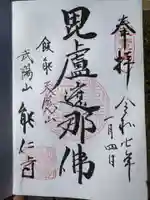 奉拝
令和七年
一月四日
毘盧遮那佛
飯能 天覧山
武陽山 能仁寺